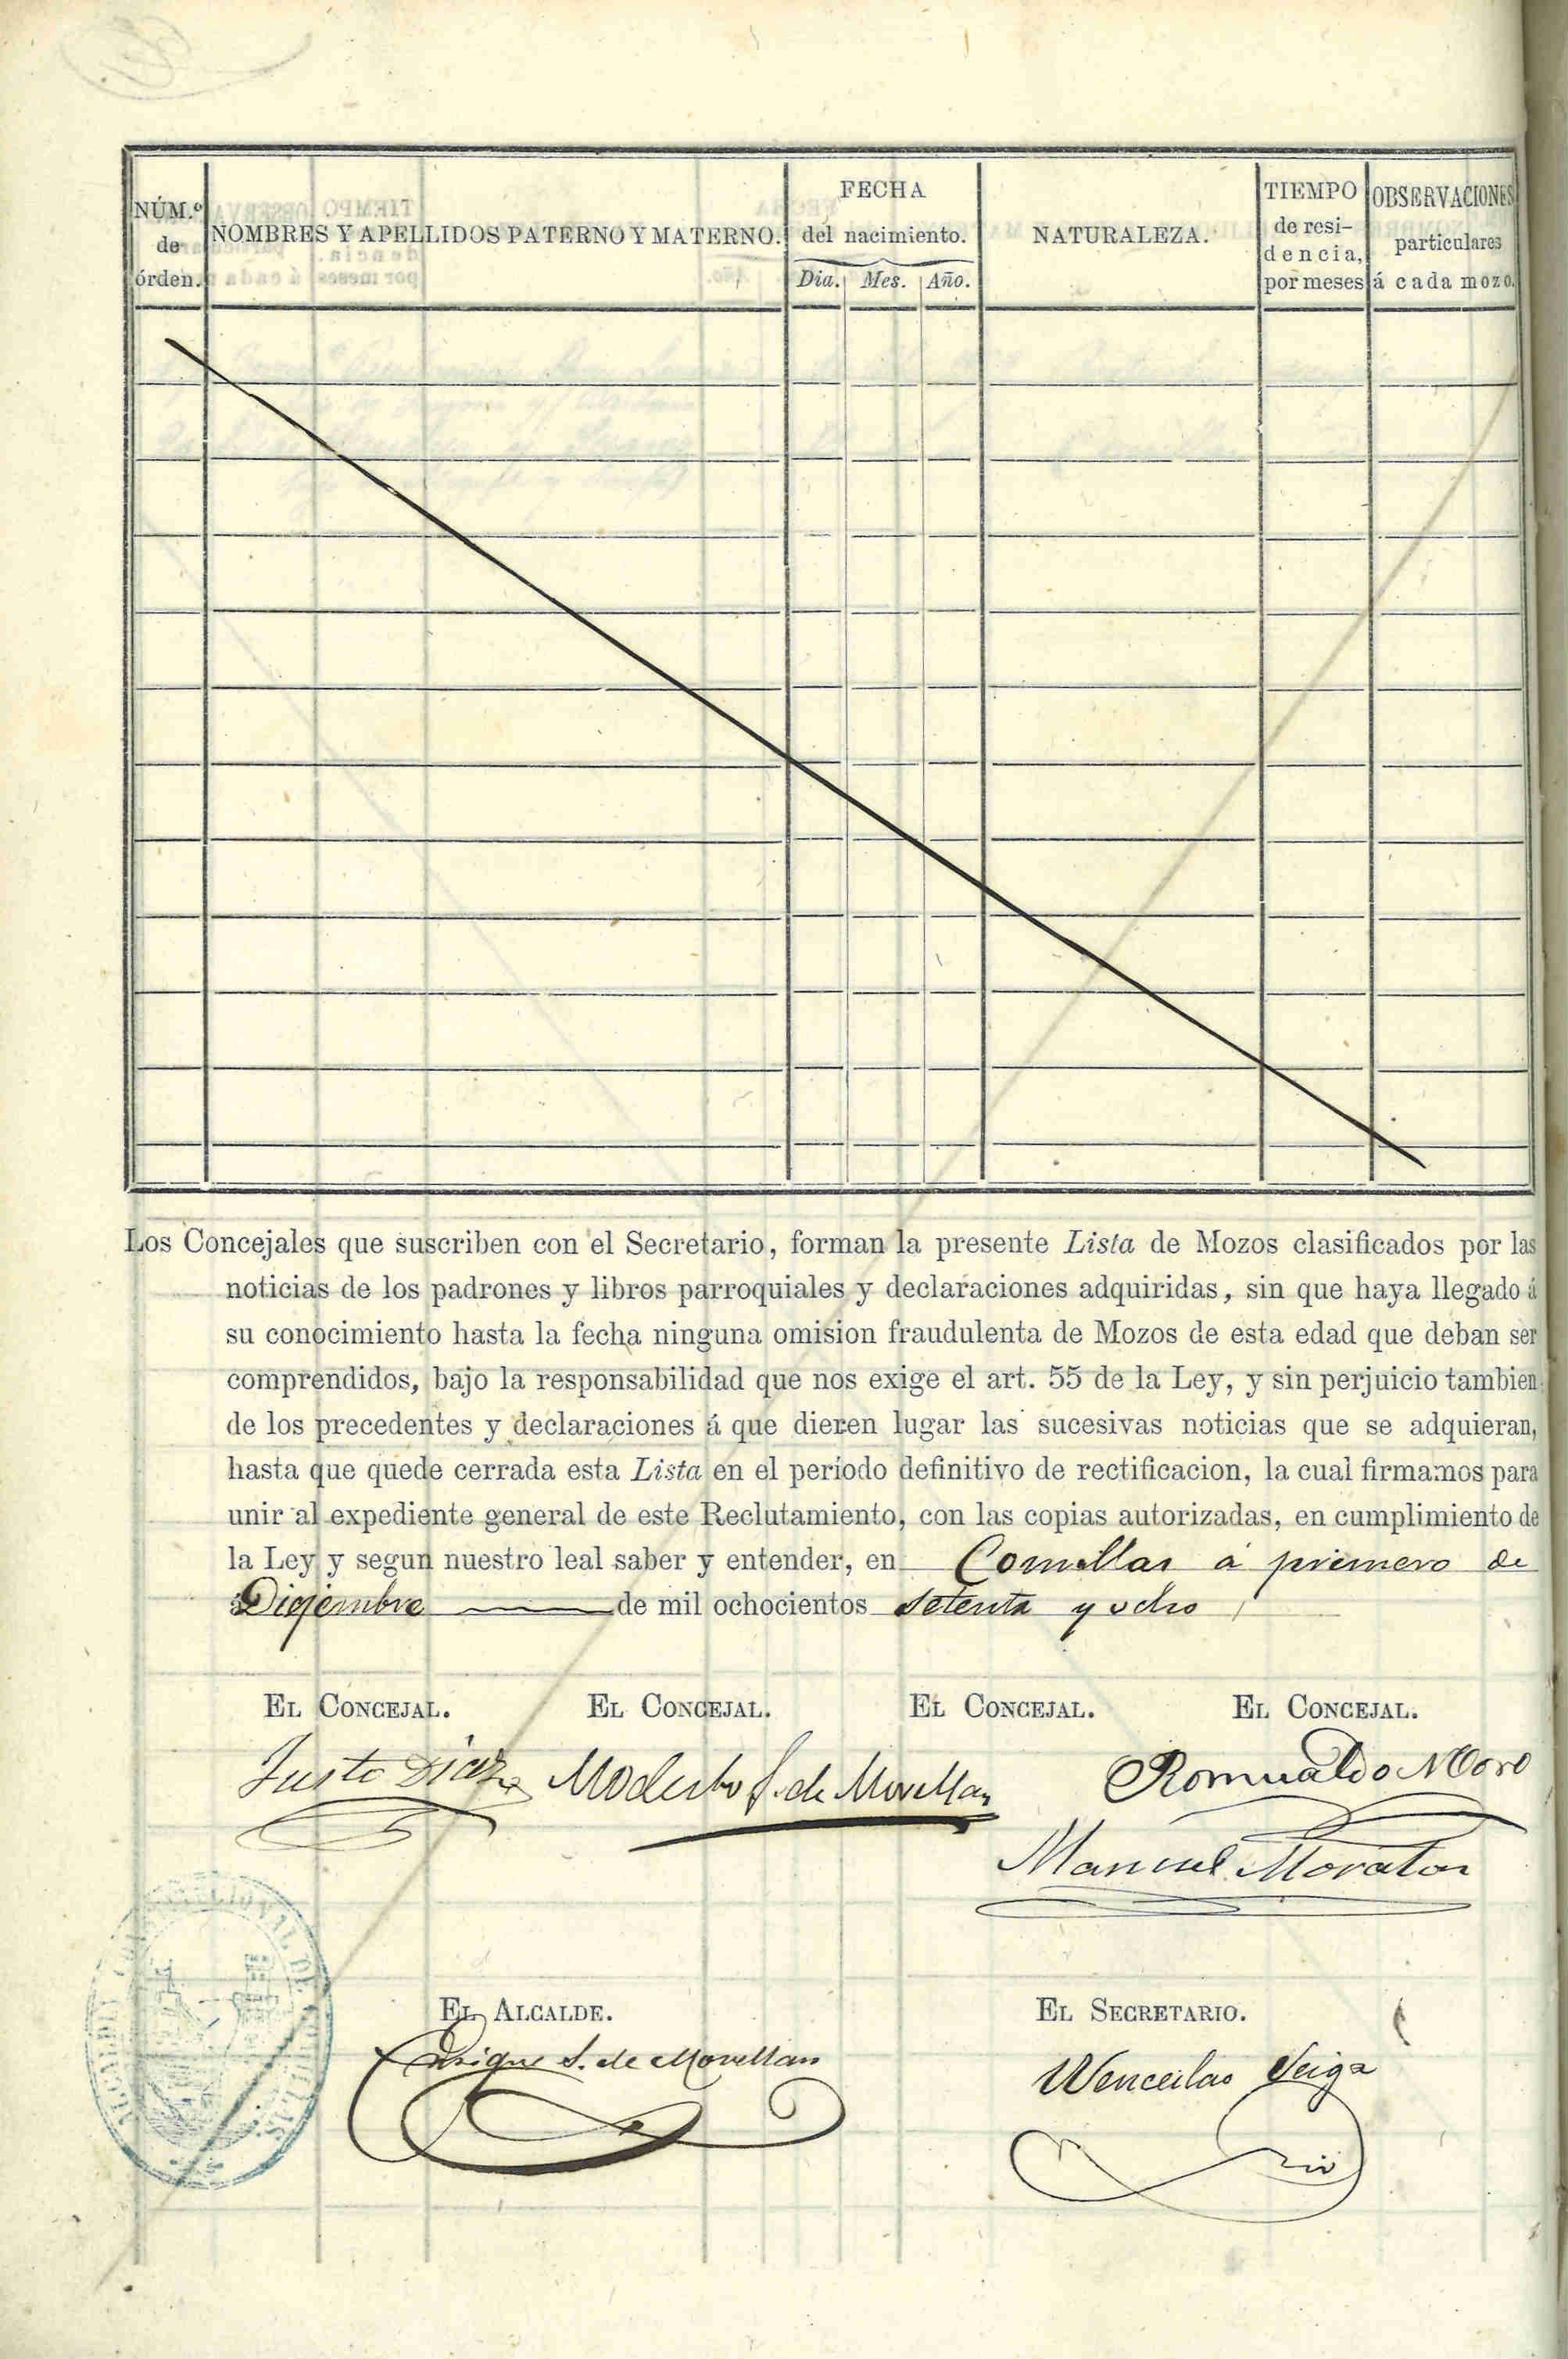 NÚM.º de órden.
NOMBRES Y APELLIDOS PATERNO Y MATERNO.
FECHA
del nacimiento.
Dia. Mes. Año.
NATURALEZA.
TIEMPO
de resi-
dencia,
por meses
OBSERVACIONES
particulares
á cada mozo.
Los Concejales que suscriben con el Secretario, forman la presente Lista de Mozos clasificados por las
noticias de los padrones y libros parroquiales y declaraciones adquiridas, sin que haya llegado á
su conocimiento hasta la fecha ninguna omision fraudulenta de Mozos de esta edad que deban ser
comprendidos, bajo la responsabilidad que nos exige el art. 55 de la Ley, y sin perjuicio tambien
de los precedentes y declaraciones á que dieren lugar las sucesivas noticias que se adquieran,
hasta que quede cerrada esta Lista en el período definitivo de rectificacion, la cual firmamos para
unir al expediente general de este Reclutamiento, con las copias autorizadas, en cumplimiento de
la Ley y segun nuestro leal saber y entender, en Comillas á primero de
Diciembre de mil ochocientos setenta y ocho
EL CONCEJAL. EL CONCEJAL. EL CONCEJAL. EL CONCEJAL.
Justo Diaz Modesto S. de Movellan Romualdo Moro
Manuel Moraton
EL ALCALDE. EL SECRETARIO.
Enrique S. de Movellan
Wenceslao Veiga